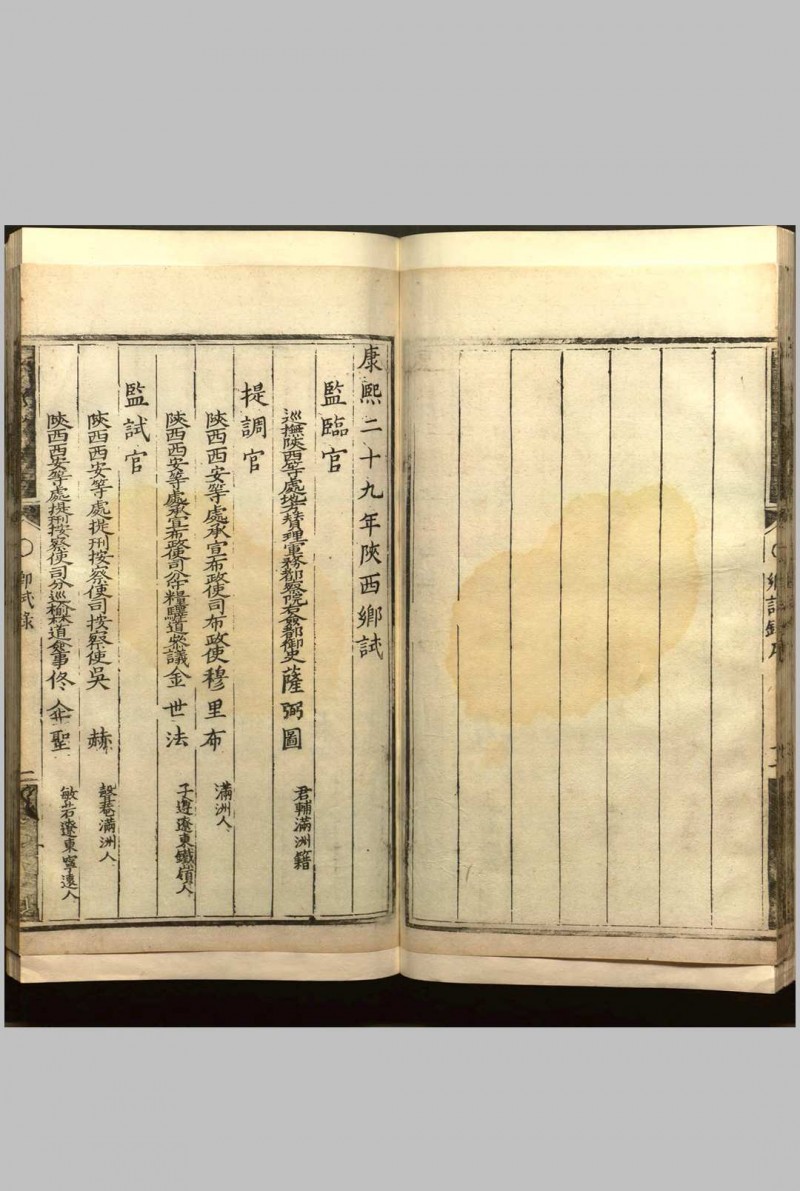 鄉試錄序
康熙二十九年陝西鄉試
監臨官
巡撫陝西等處地方贊理軍務都察院右僉都御史薩弼圖 君輔滿洲籍
提調官
陝西西安等處承宣布政使司布政使穆里布 滿洲人
陝西西安等處承宣布政使司分守糧驛道叅議金世法 子遵遼東鐵嶺人
監試官
陝西西安等處提刑按察使司按察使吳赫 滿洲人
陝西西安等處提刑按察使司分巡榆林道僉事佟 聖 敏若遼東寧遠人
鄉試錄
二